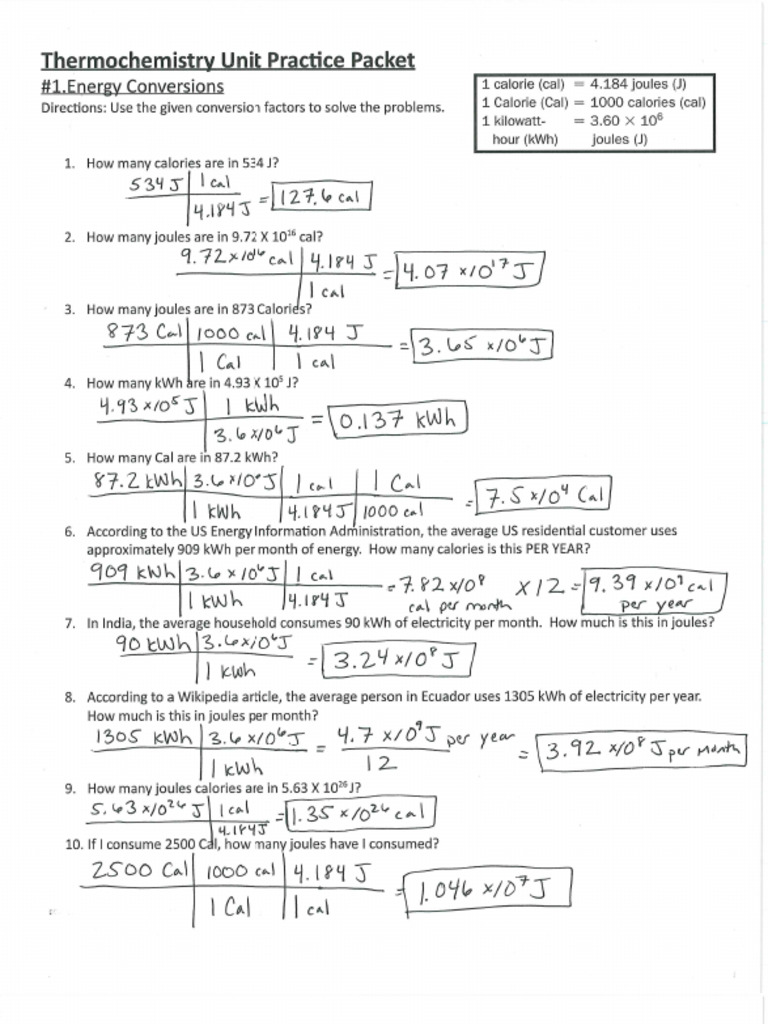 Thermochemistry Unit Practice Packet
#1.Energy Conversions
Directions: Use the given conversion factors to solve the problems.
1 calorie (cal) = 4.184 joules (J)
1 Calorie (Cal) = 1000 calories (cal)
1 kilowatt- = 3.60 × 10⁶
hour (kWh) joules (J)
1. How many calories are in 534 J?
534 J | 1 cal
4.184 J = 127.6 cal
2. How many joules are in 9.72 X 10¹⁶ cal?
9.72 x10¹⁶ cal | 4.184 J
1 cal = 4.07 x10¹⁷ J
3. How many joules are in 873 Calories?
873 Cal | 1000 cal | 4.184 J
1 Cal | 1 cal = 3.65 x10⁶ J
4. How many kWh are in 4.93 X 10⁵ J?
4.93 x10⁵ J | 1 kWh
3.6 x10⁶ J = 0.137 kWh
5. How many Cal are in 87.2 kWh?
87.2 kWh | 3.6 x10⁶ J | 1 cal | 1 Cal
1 kWh | 4.184 J | 1000 cal = 7.5 x10⁴ Cal
6. According to the US Energy Information Administration, the average US residential customer uses
approximately 909 kWh per month of energy. How many calories is this PER YEAR?
909 kWh | 3.6 x10⁶ J | 1 cal
1 kWh | 4.184 J = 7.82 x10⁸ cal per month X 12 = 9.39 x10⁹ cal per year
7. In India, the average household consumes 90 kWh of electricity per month. How much is this in joules?
90 kWh | 3.6 x10⁶ J
1 kWh = 3.24 x10⁸ J
8. According to a Wikipedia article, the average person in Ecuador uses 1305 kWh of electricity per year.
How much is this in joules per month?
1305 kWh | 3.6 x10⁶ J = 4.7 x10⁹ J per year
1 kWh 12 = 3.92 x10⁸ J per Month
9. How many joules calories are in 5.63 X 10²⁶ J?
5.63 x10²⁶ J | 1 cal
4.184 J = 1.35 x10²⁶ cal
10. If I consume 2500 Cal, how many joules have I consumed?
2500 Cal | 1000 cal | 4.184 J
1 Cal | 1 cal = 1.046 x10⁷ J